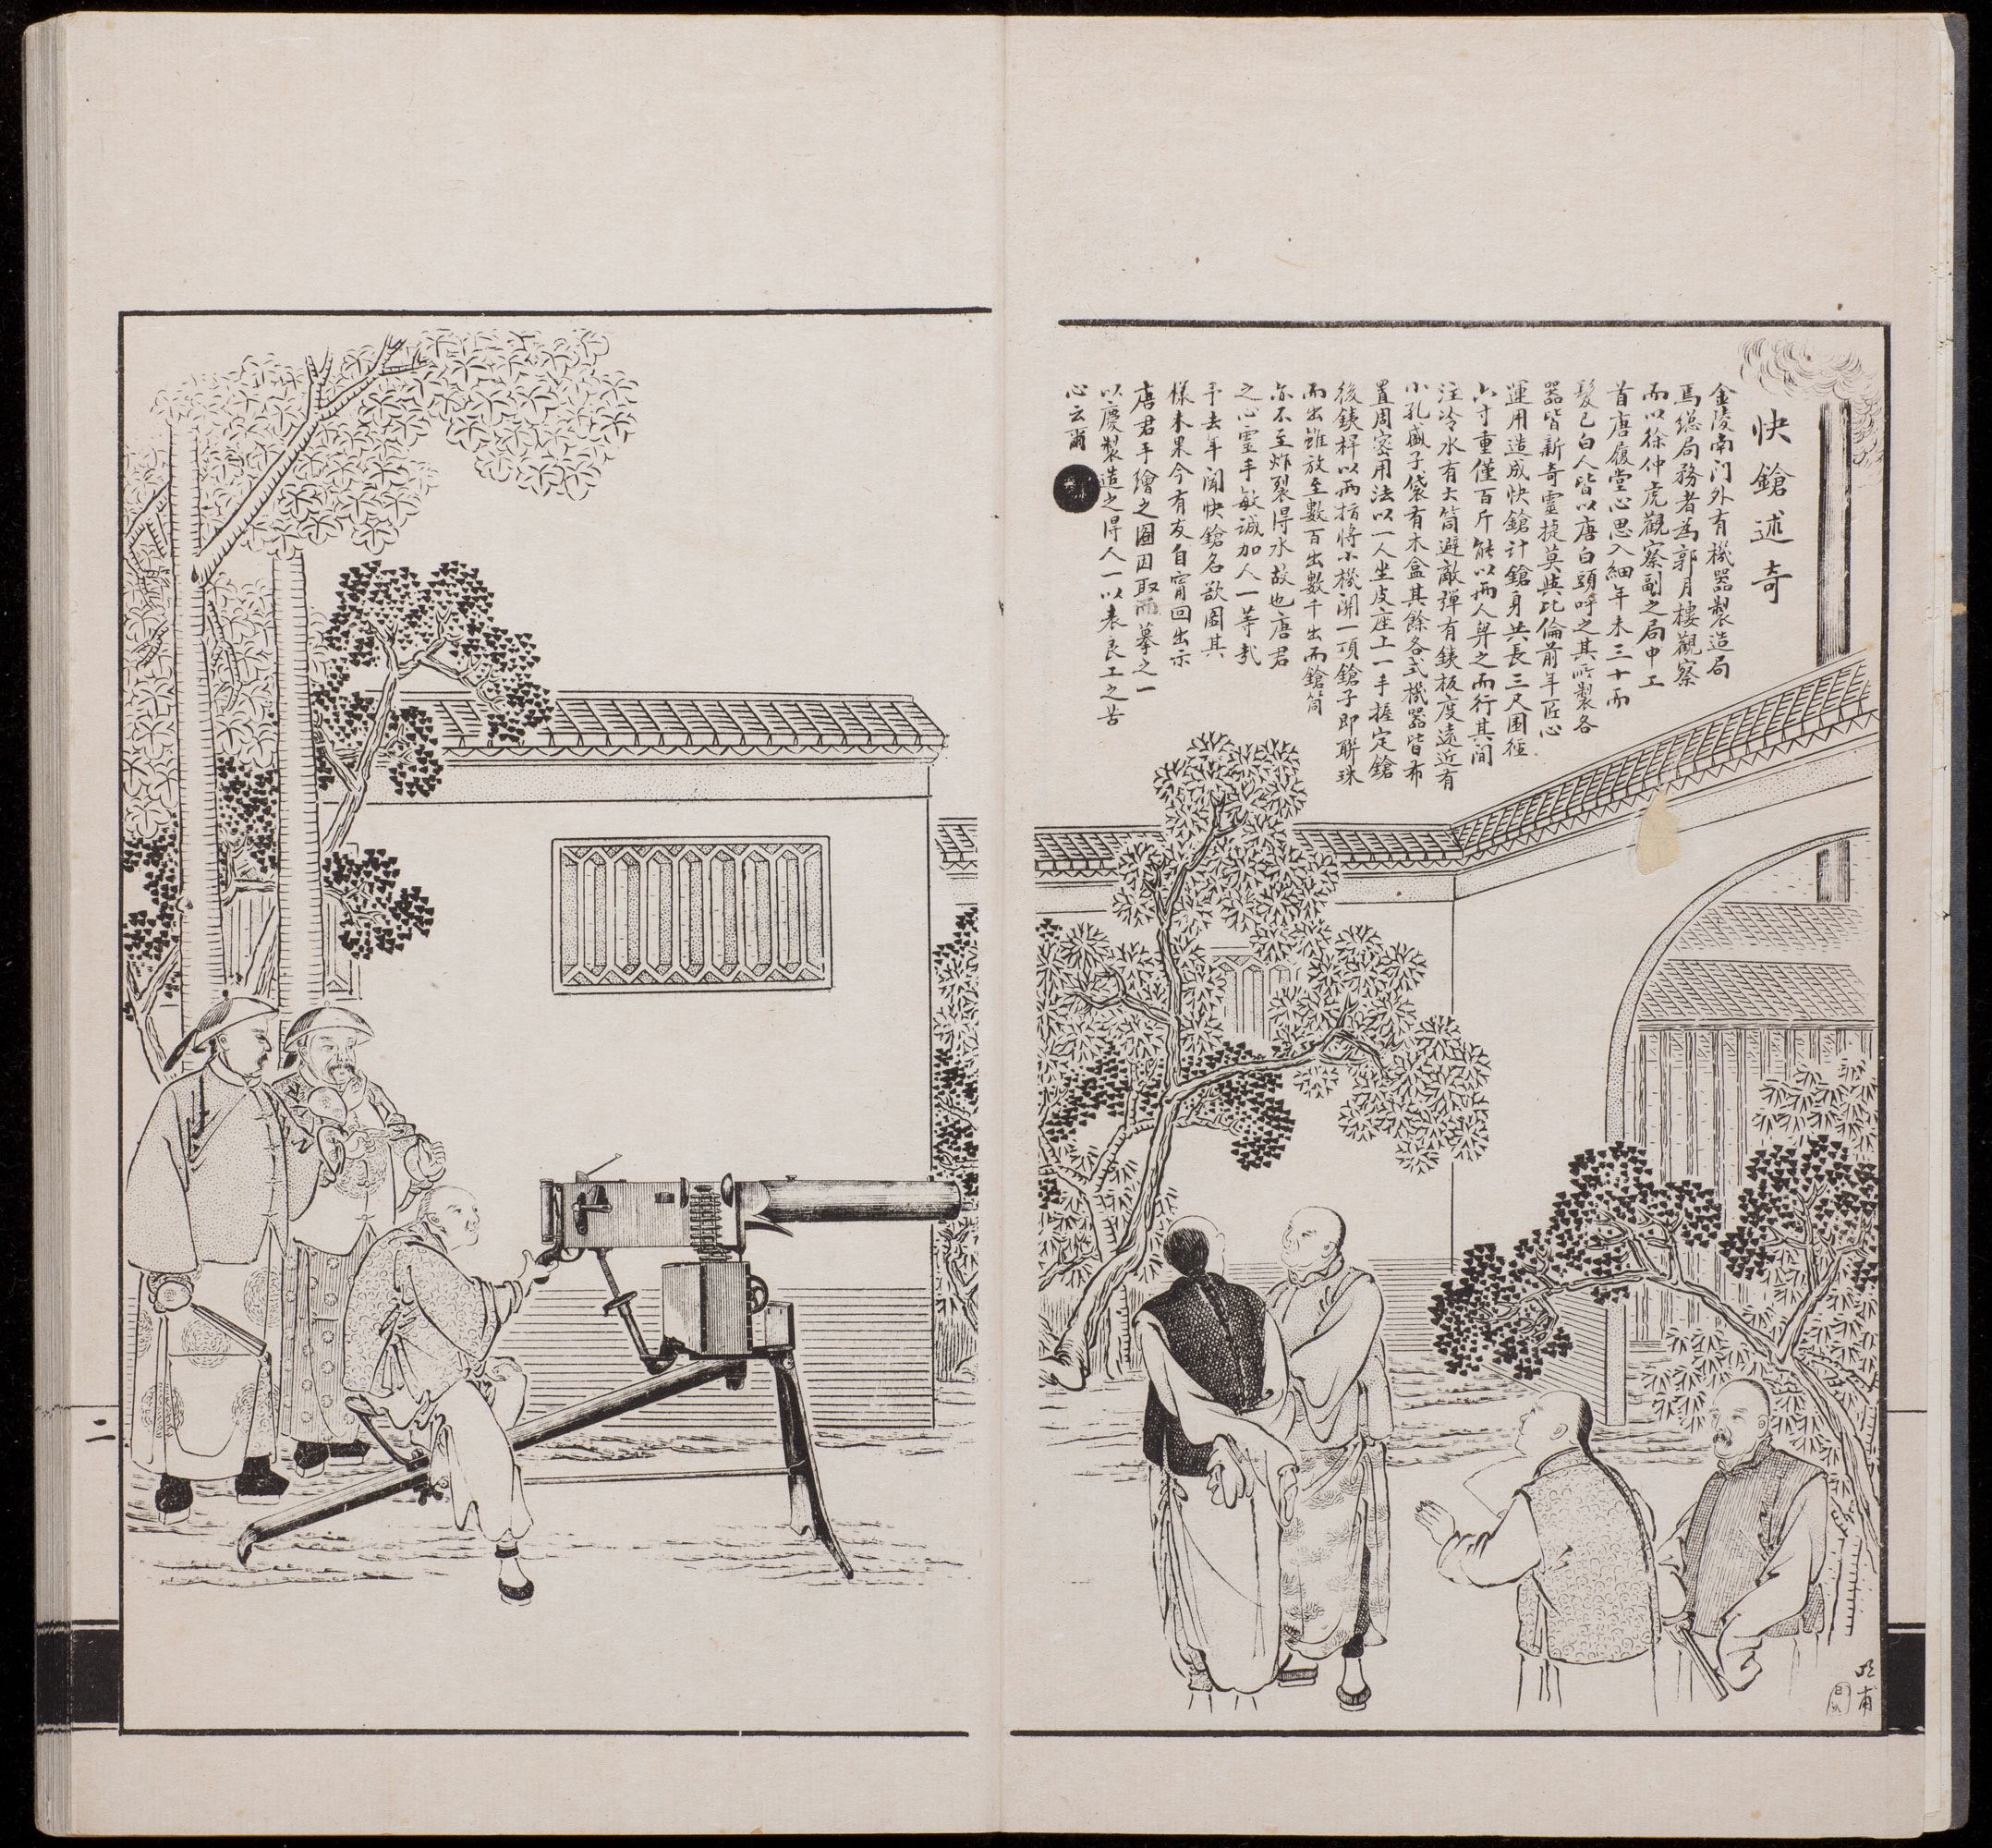 快鎗述奇
金陵南门外有機器製造局
焉総局務者為郭月樓觀察
而以徐仲虎觀察副之局中工
首唐履堂心思入細年未三十而
髮已白人皆以唐白頭呼之其所製各
器皆新奇靈捷莫與比倫前年匠心
運用造成快鎗計鎗身共長三尺圍徑
六寸重僅百斤能以兩人舁之而行其間
注冷水有大筒避敵彈有鉄板度遠近有
小孔盛子袋有木盒其餘各式機器皆布
置周密用法以一人坐皮座上一手握定鎗
後鉄桿以兩指將小機開一頂鎗子即聯珠
而出雖放至數百出數千出而鎗筒
亦不至炸裂得水故也唐君
之心靈手敏誠加人一等哉
予去年聞快鎗名欲圖其
樣未果今有友自甯回出示
唐君手繪之圖因取而摹之一
以慶製造之得人一以表良工之苦
心云爾
明甫
二